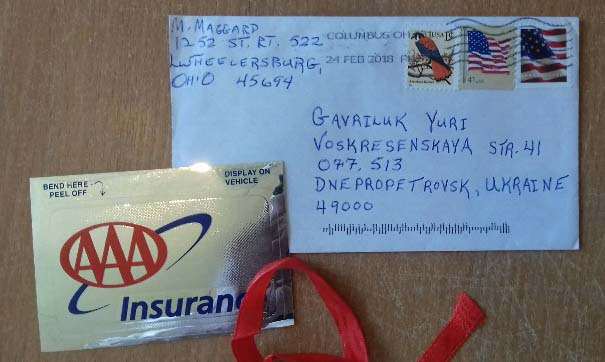 M. MAGGARD
1252 ST. RT. 522
WHEELERSBURG,
OHIO 45694
COLUMBUS OH
24 FEB 2018 PM
USA 1c
American Kestrel
41 USA
GAVRILUK YURI
VOSKRESENSKAYA STR. 41
077. 513
DNEPROPETROVSK, UKRAINE
49000
BEND HERE
PEEL OFF
DISPLAY ON
VEHICLE
AAA
Insuranc